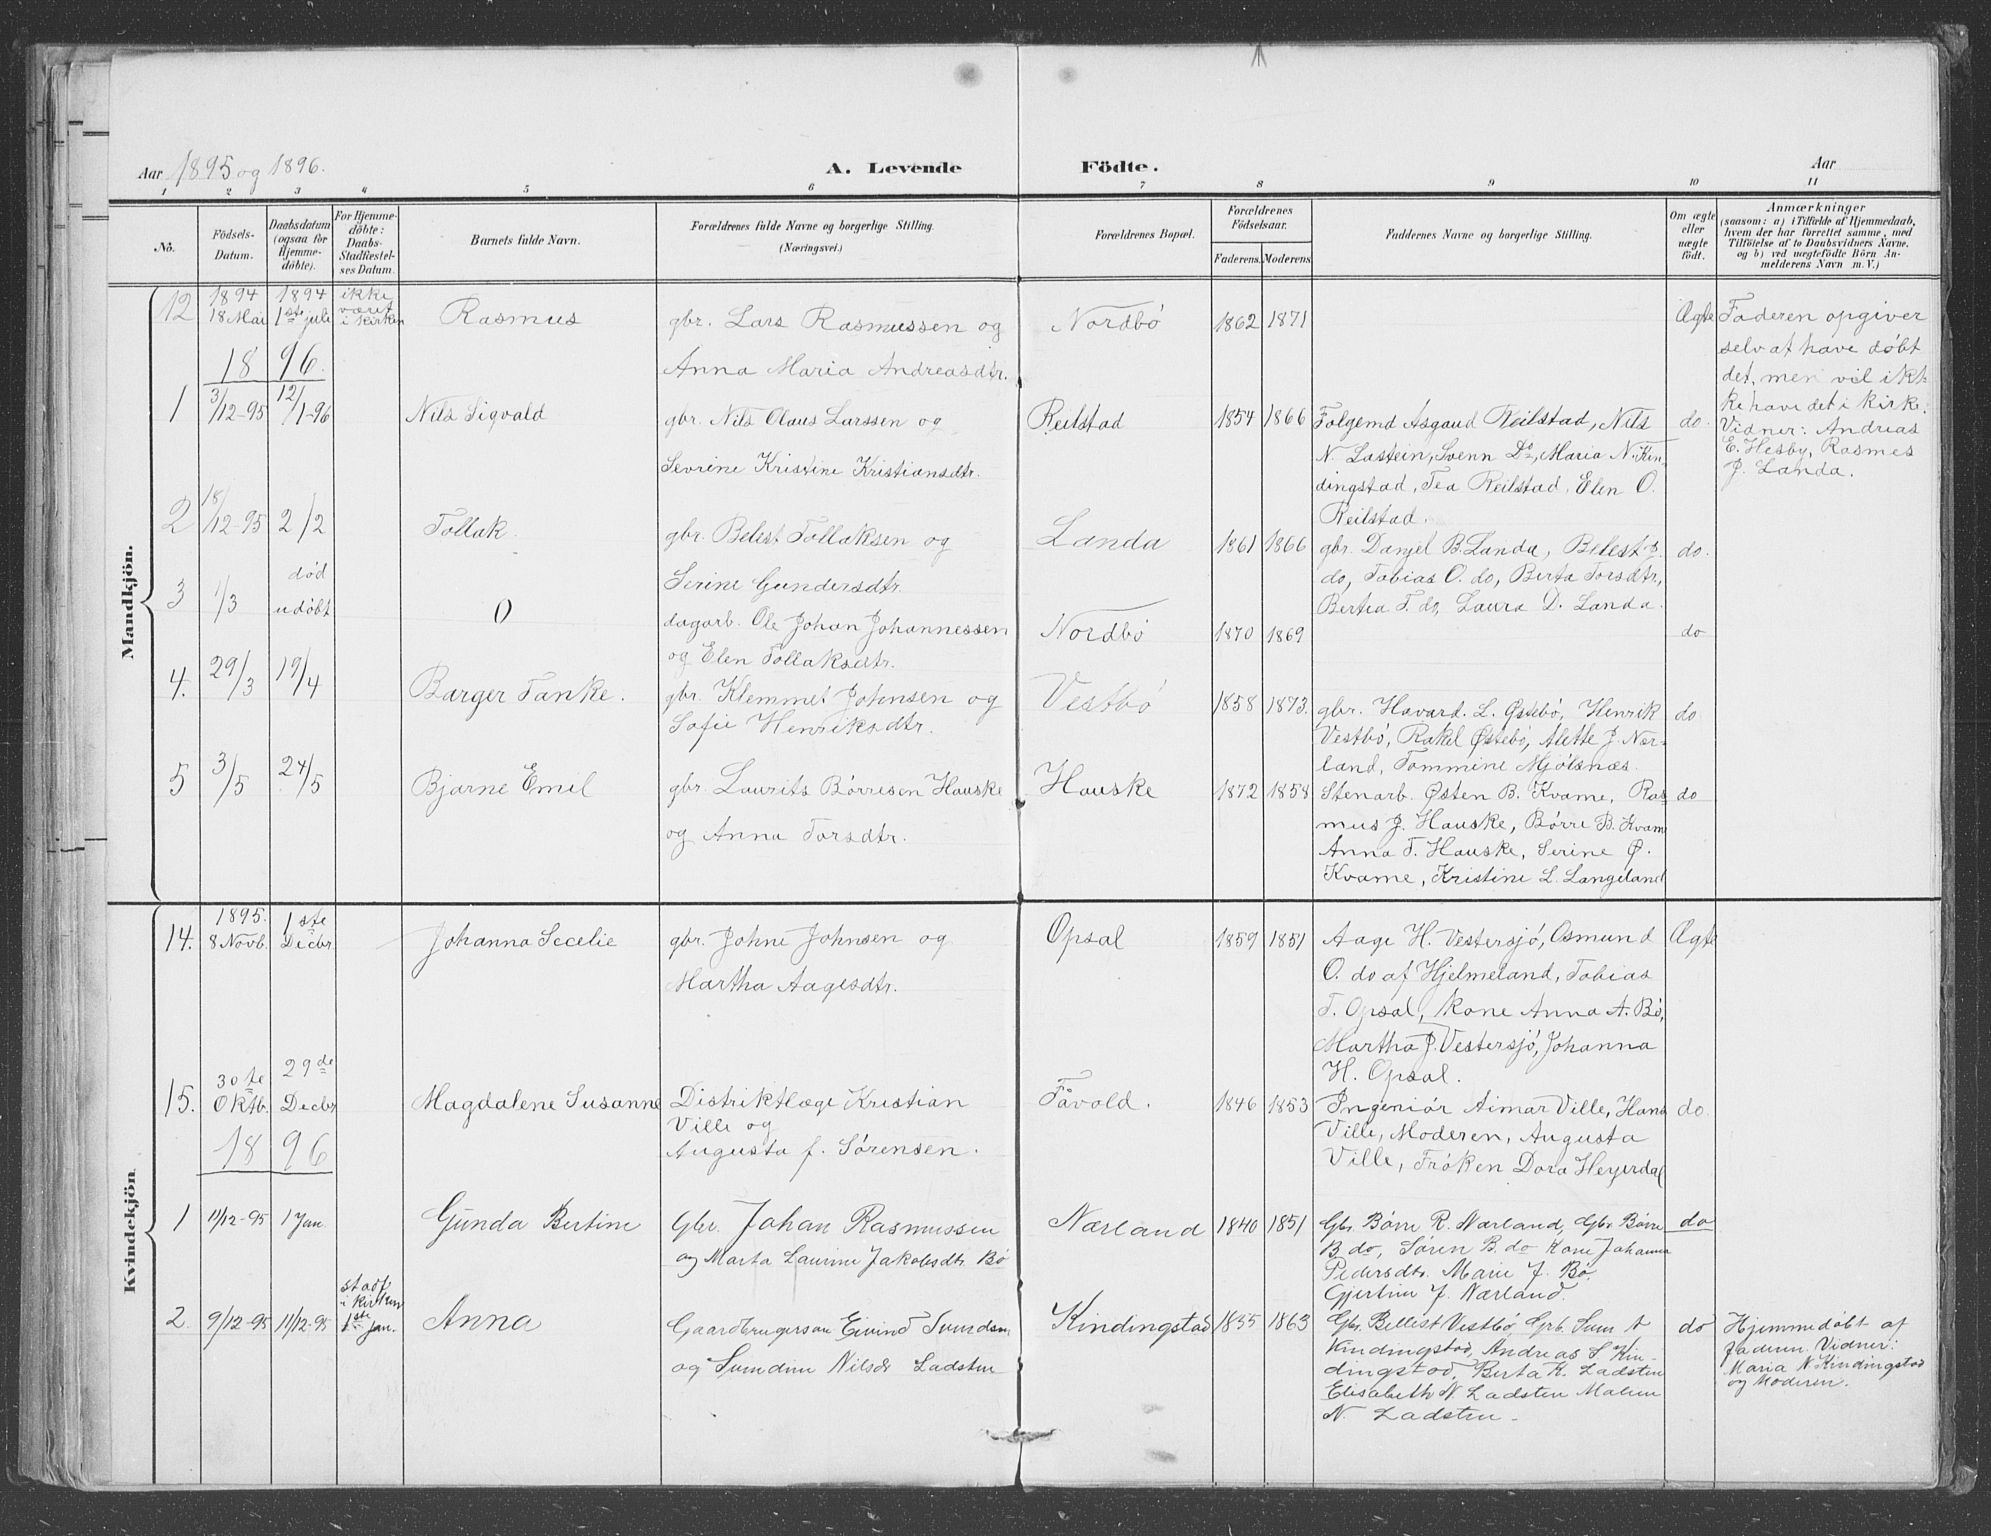 Aar 1895 og 1896. A. Levende Födte. Aar
1 2 3 4 5 6 7 8 9 10 11
No.
Födsels-Datum.
Daabsdatum (ogsaa for Hjemme-döbte).
For Hjemme-döbte: Daabs-Stadfæstel-ses Datum.
Barnets fulde Navn.
Forældrenes fulde Navne og borgerlige Stilling. (Næringsvei.)
Forældrenes Bopæl.
Forældrenes Födselsaar.
Faderens. Moderens.
Faddernes Navne og borgerlige Stilling.
Om ægte eller uægte födt.
Anmærkninger
(saasom: a) i Tilfælde af Hjemmedaab,
hvem der har forrettet samme, med
Tilföielse af to Daabsvidners Navne,
og b) ved uægtefödte Börn An-
melderens Navn m. V.)
Mandkjön.
12 1894 18 Mai 1894 1ste juli ikke været i kirken Rasmus gbr. Lars Rasmussen og Nordbö 1862 1871 Ægte Faderen opgiver
Anna Maria Andreasdtr. selv at have döbt
det, men vil ik-
ke have det i kirke.
Vidner: Andreas
E. Hesby, Rasmes
J. Landa.
1896.
1 3/12-95 12/1-96 Nils Sigvald gbr. Nils Olaus Larssen og Reilstad 1854 1866 Folgemd Asgaud Reilstad, Nils do.
Sevrine Kristine Kristiansdtr. N. Lastein, Svenn Do, Maria N. Kin-
dingstad, Tea Reilstad, Elen O.
Reilstad.
2 18/12-95 2/2 Tollak. gbr. Belest Tollaksen og Landa 1861 1866 gbr. Danjel B. Landa, Belest P. do.
Serine Gundersdtr. do, Tobias O. do, Berta Torsdtr,
Bertea T. do, Laura D. Landa.
3 1/3 död udöbt O dagarb. Ole Johan Johannessen Nordbö 1870 1869 do
og Elen Tollaksdtr.
4. 29/3 19/4 Barger Tanke. gbr. Klemmet Johnsen og Vestbö 1858 1873. gbr. Havard. L. Østebö, Henrik do
Sofie Henriksdtr. Vestbö, Rakel Østebö, Alette J. Nær-
land, Tommine Mjölsnæs.
5 3/5 24/5 Bjarne Emil gbr. Laurits Börresen Hauske Hauske 1872 1858 Stenarb. Østen B. Kvame, Ras- do
og Anna Torsdtr. mus J. Hauske, Börre B. Kvame
Anna T. Hauske, Serine Ø.
Kvame, Kristine L. Langeland
Kvindekjön.
14. 1895. 8 Novb. 1ste Decbr. Johanna Secelie gbr. Johne Johnsen og Opsal 1859 1851 Aage H. Vestersjö, Osmund Ægte
Martha Aagesdtr. O. do af Hjelmeland, Tobias
T. Opsal, kone Anna A. Bö,
Martha J. Vestersjö, Johanna
H. Opsal.
15. 30te Oktb. 29de Decbr Magdalene Susanne Distriktlæge Kristian Tåvold. 1846 1853 Ingeniör Aimar Ville, Hans do.
Ville og Ville, Moderen, Augusta
Augusta f. Sörensen. Ville, Fröken Dora Heyerdal
1896
1 11/12-95 1 Jan. Gunda Bertine Gbr. Johan Rasmussen Nærland 1840 1851 Gbr. Börre R. Nærland, Gbr Börre do
og Marta Laurine Jakobsdtr. Bö B. do, Sören B. do Kone Johanna
Pedersdtr. Marie J. Bö.
Gjertine J. Nærland.
2. 9/12-95 11/12-95 stadf. i kirken 1ste Jan. Anna Gaardbrugerson Eivind Svendsen Kindingstad 1855 1863 Gbr. Bellest Vestbö, Grb. Sven A do Hjemmedöbt af
og Svendine Nilsdr Ladsten Kindingstad, Andreas S Kin- Faderen Vidner:
dingstad, Berta K. Ladsten Maria N. Kindingstad
Elisabeth N. Ladsten Malene og Moderen.
N. Ladsten.